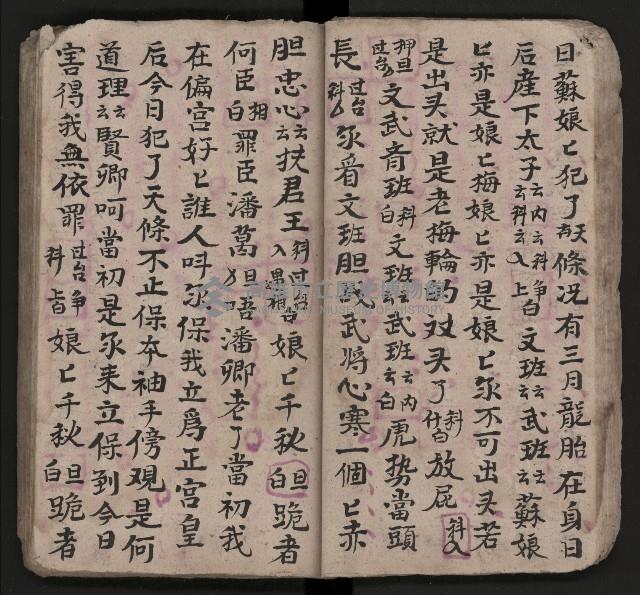 日蘇娘匕犯了天條况有三月龍胎在身日
后産下太子云内云科争白文班云武班云蘇娘
云科云入上
匕亦是娘匕梅娘匕亦是娘匕尔不可出头若
是出头就是老梅輪的对头了科白放屁科入
押旦过台文武斎班科白文武班云武班云内云白虎势當頭
長过台科入尔看文班胆武武將心寒一個匕赤
胆忠心云云扶君王科过台入娘匕千秋旦白跪者
何臣相白罪臣潘葛旦唔潘卿老了當初我
在偏宫好匕誰人呌尔保我立爲正宫皇
后今日犯了天條不正保夲袖手傍观是何
道理云云賢卿呵當初是尔来立保到今日
害得我無依罪过台争科皆娘匕千秋旦白跪者